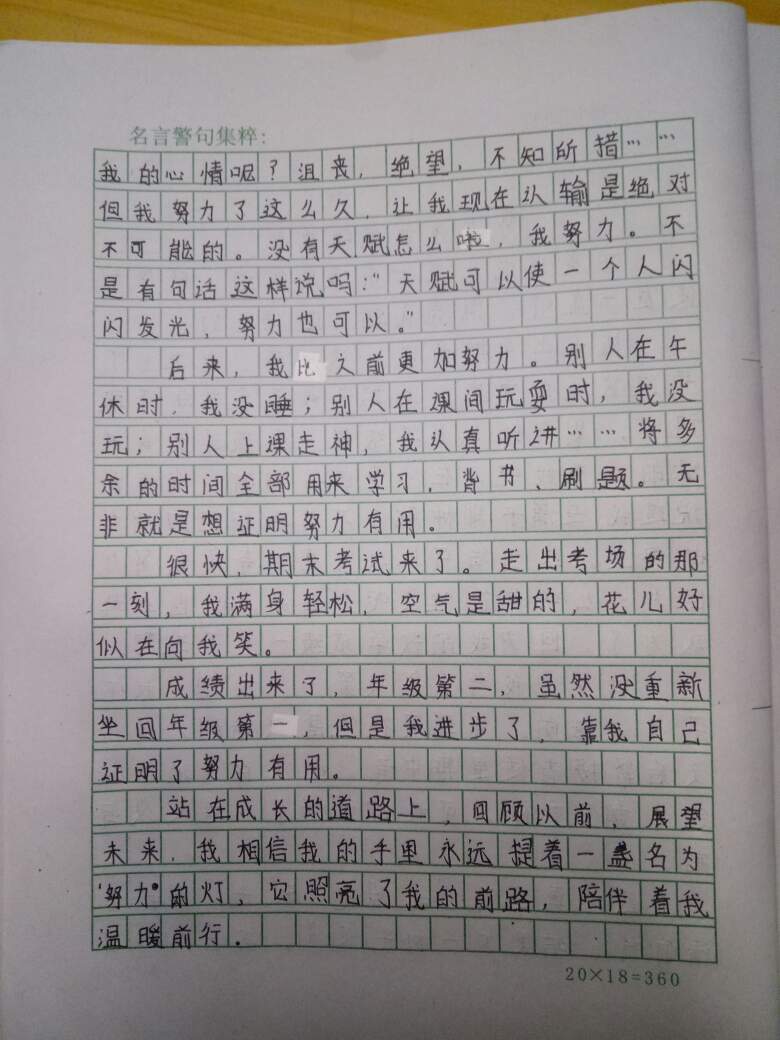 名言警句集粹:
我的心情呢？沮丧，绝望，不知所措……
但我努力了这么久，让我现在认输是绝对
不可能的。没有天赋怎么啦，我努力。不
是有句话这样说吗：“天赋可以使一个人闪
闪发光，努力也可以。”
后来，我比之前更加努力。别人在午
休时，我没睡；别人在课间玩耍时，我没
玩；别人上课走神，我认真听讲……将多
余的时间全部用来学习，背书、刷题。无
非就是想证明努力有用。
很快，期末考试来了。走出考场的那
一刻，我满身轻松，空气是甜的，花儿好
似在向我笑。
成绩出来了，年级第二，虽然没重新
坐回年级第一，但是我进步了，靠我自己
证明了努力有用。
站在成长的道路上，回顾以前，展望
未来，我相信我的手里永远提着一盏名为
“努力”的灯，它照亮了我的前路，陪伴着我
温暖前行。
20×18=360